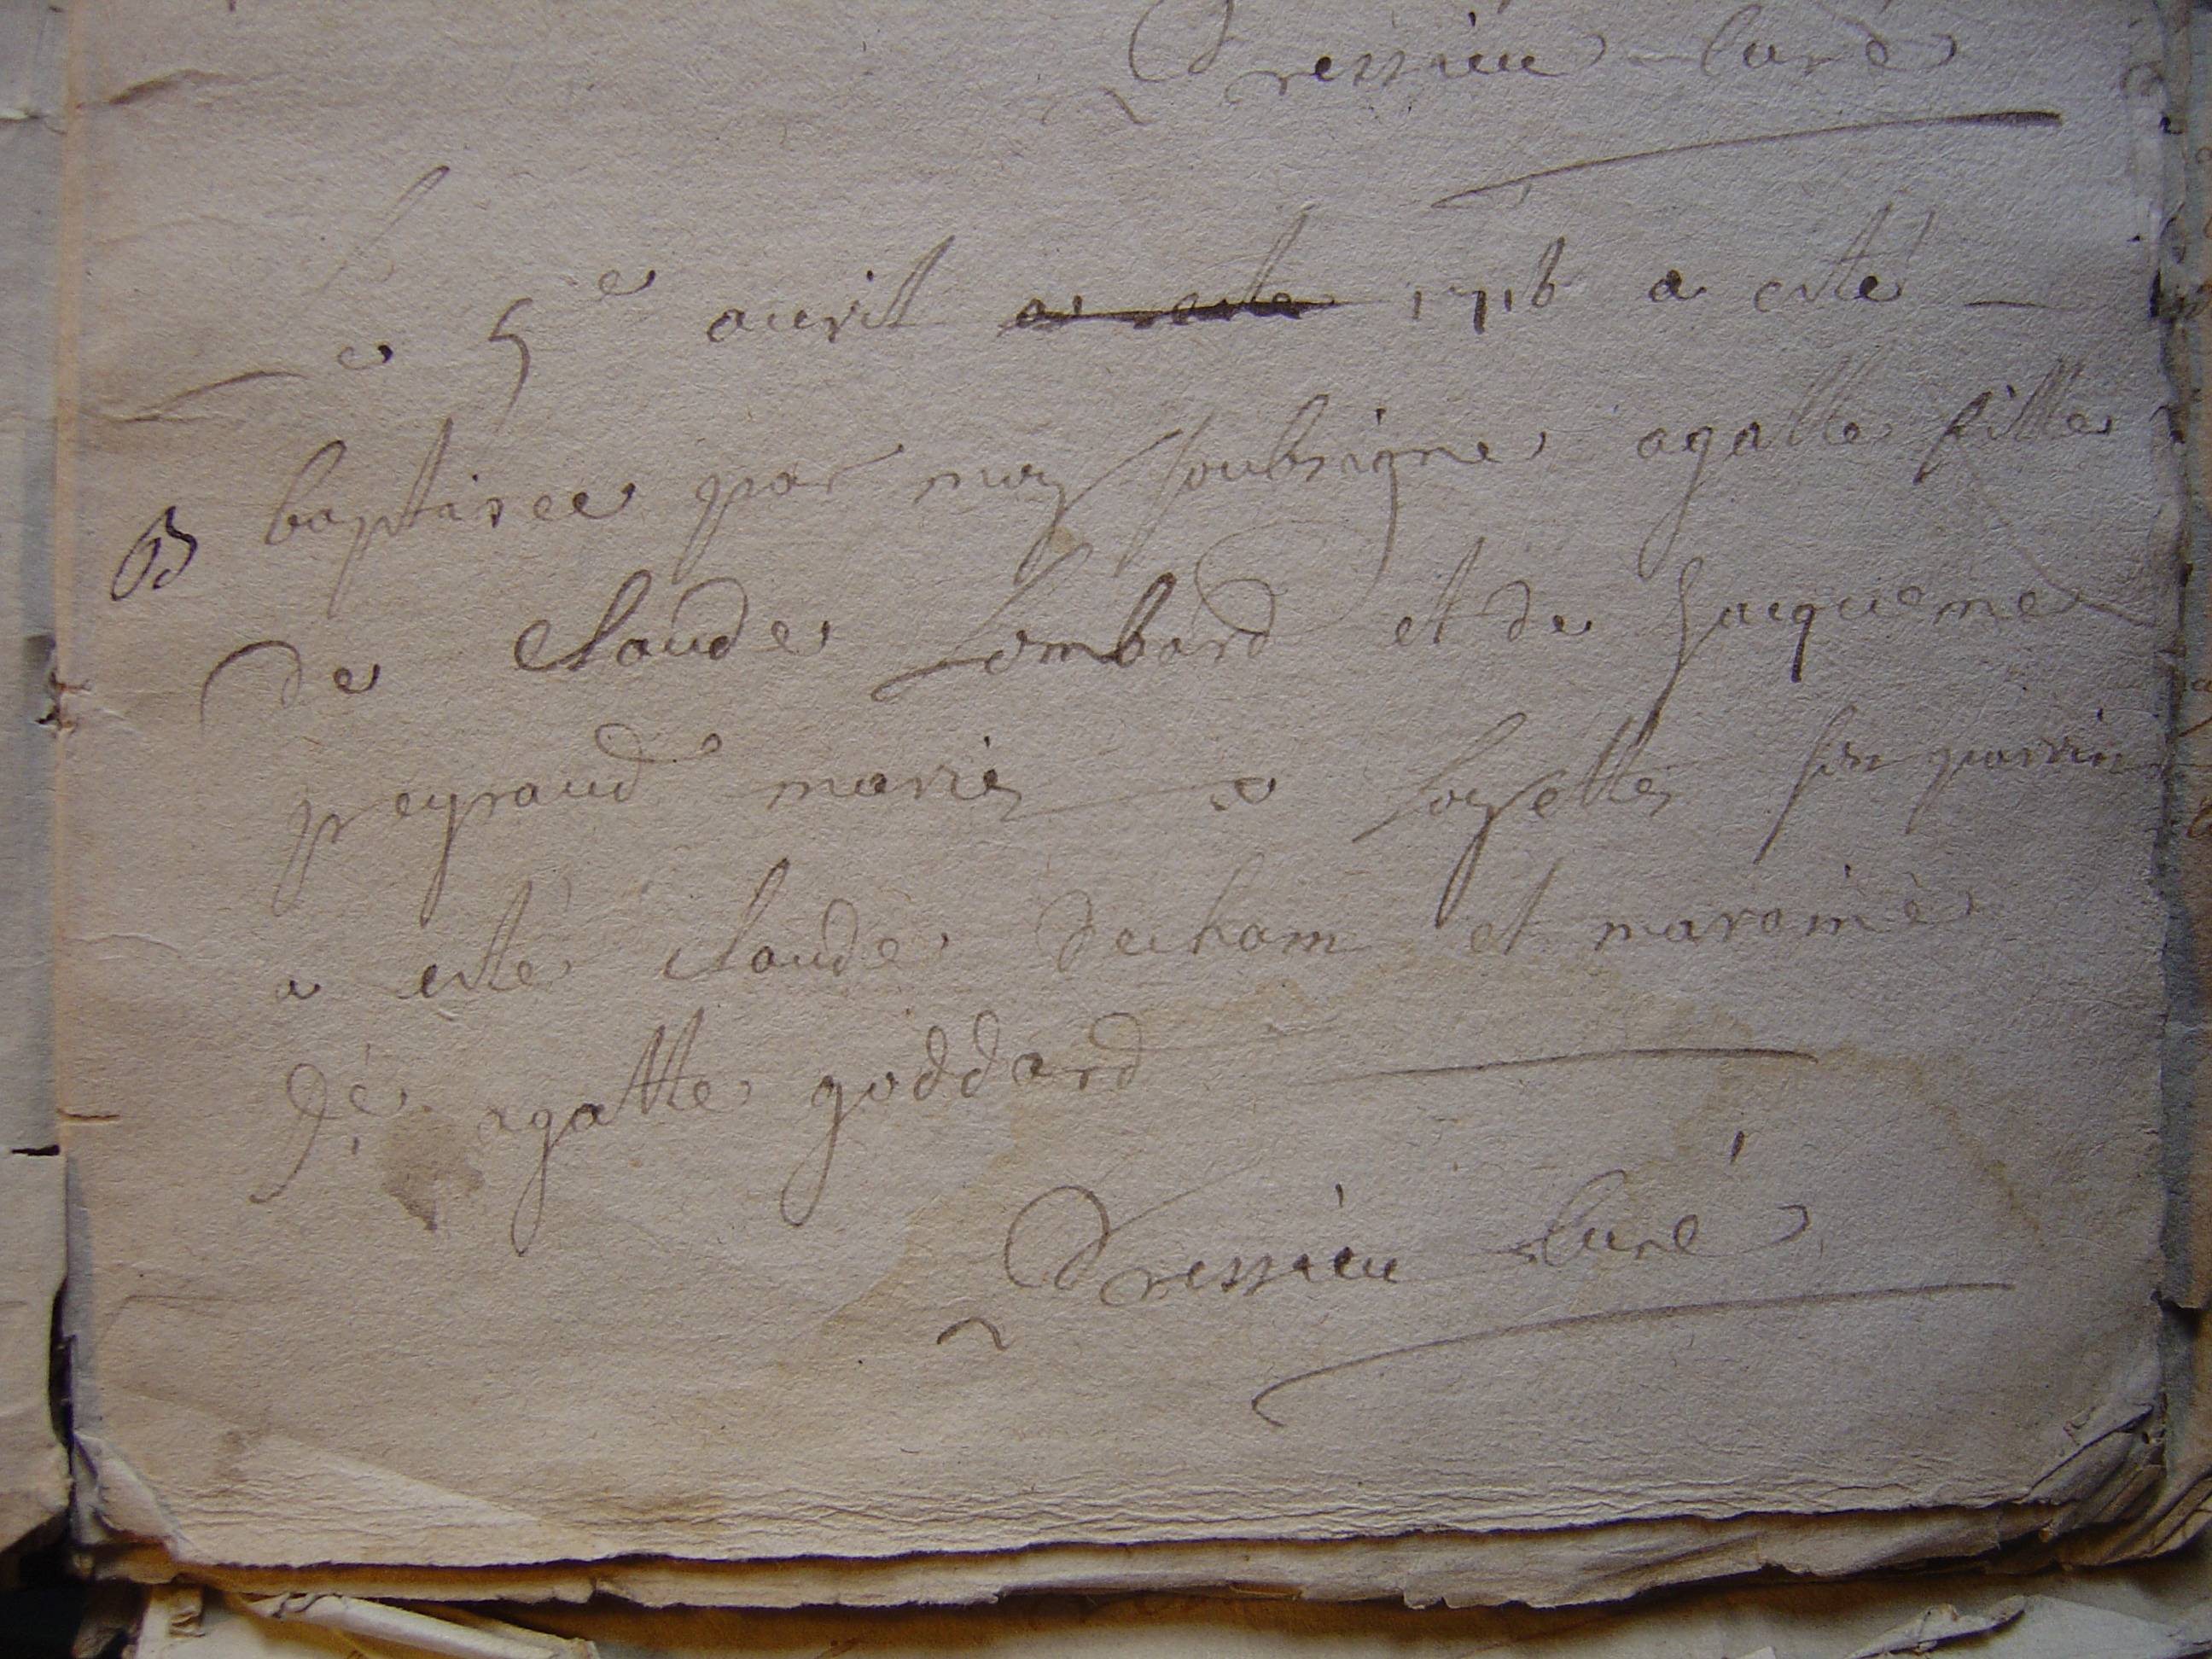 Dressieu Curé
Le 5e avril a este 1716 a esté
B baptisee par moy soubsigne agatte fille
de Claude Lombard et de Jacqueme
peyraud mariez a soyettes son parrin
a esté claude ducham et maraine
De agatte goddard
Dressieu Curé